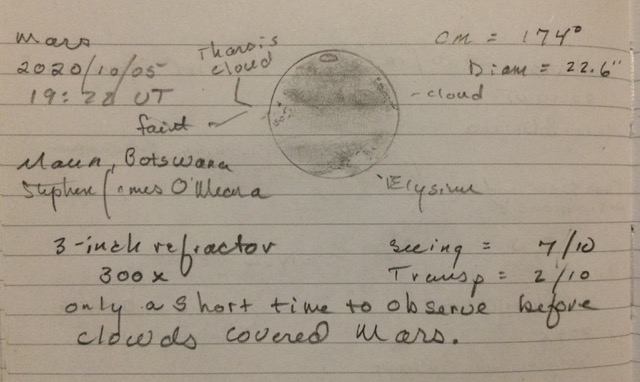 Mars
2020/10/05
19:22 UT
Tharsis
cloud
faint
CM = 174°
Diam = 22.6"
cloud
Elysium
Maun, Botswana
Stephen James O'Meara
3-inch refractor
300x
seeing = 7/10
Transp = 2/10
only a short time to observe before
clouds covered Mars.